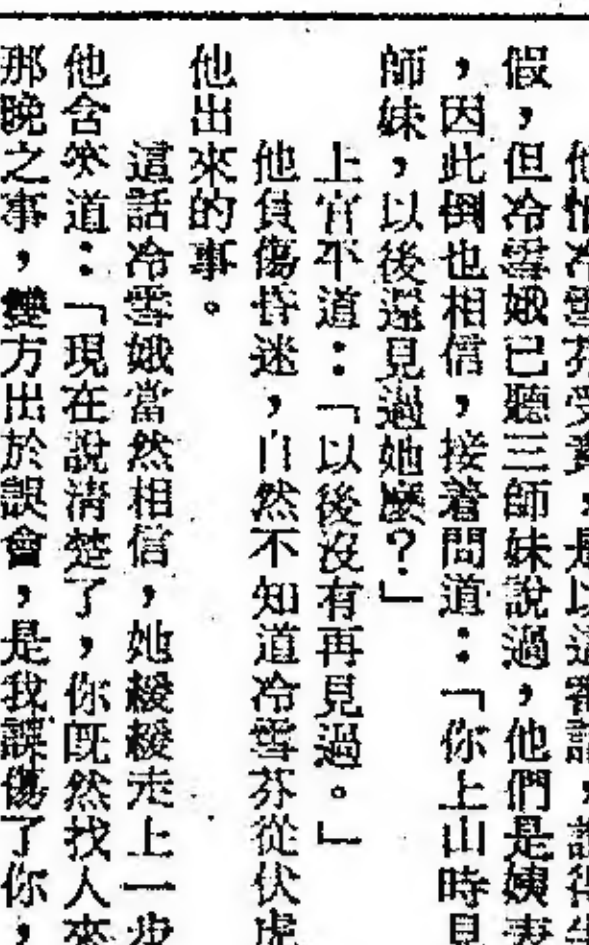 他怕冷雪芬受責，是以這番話，說得半
假，但冷雪娥已聽三師妹說過，他們是姨表
，因此倒也相信，接着問道：「你上山時見
師妹，以後還見過她麼？」
上官平道：「以後沒有再見過。」
他負傷昏迷，自然不知道冷雪芬從伏虎
他出來的事。
這話冷雪娥當然相信，她緩緩走上一步
他含笑道：「現在說清楚了，你既然找人來
那晚之事，雙方出於誤會，是我誤傷了你，